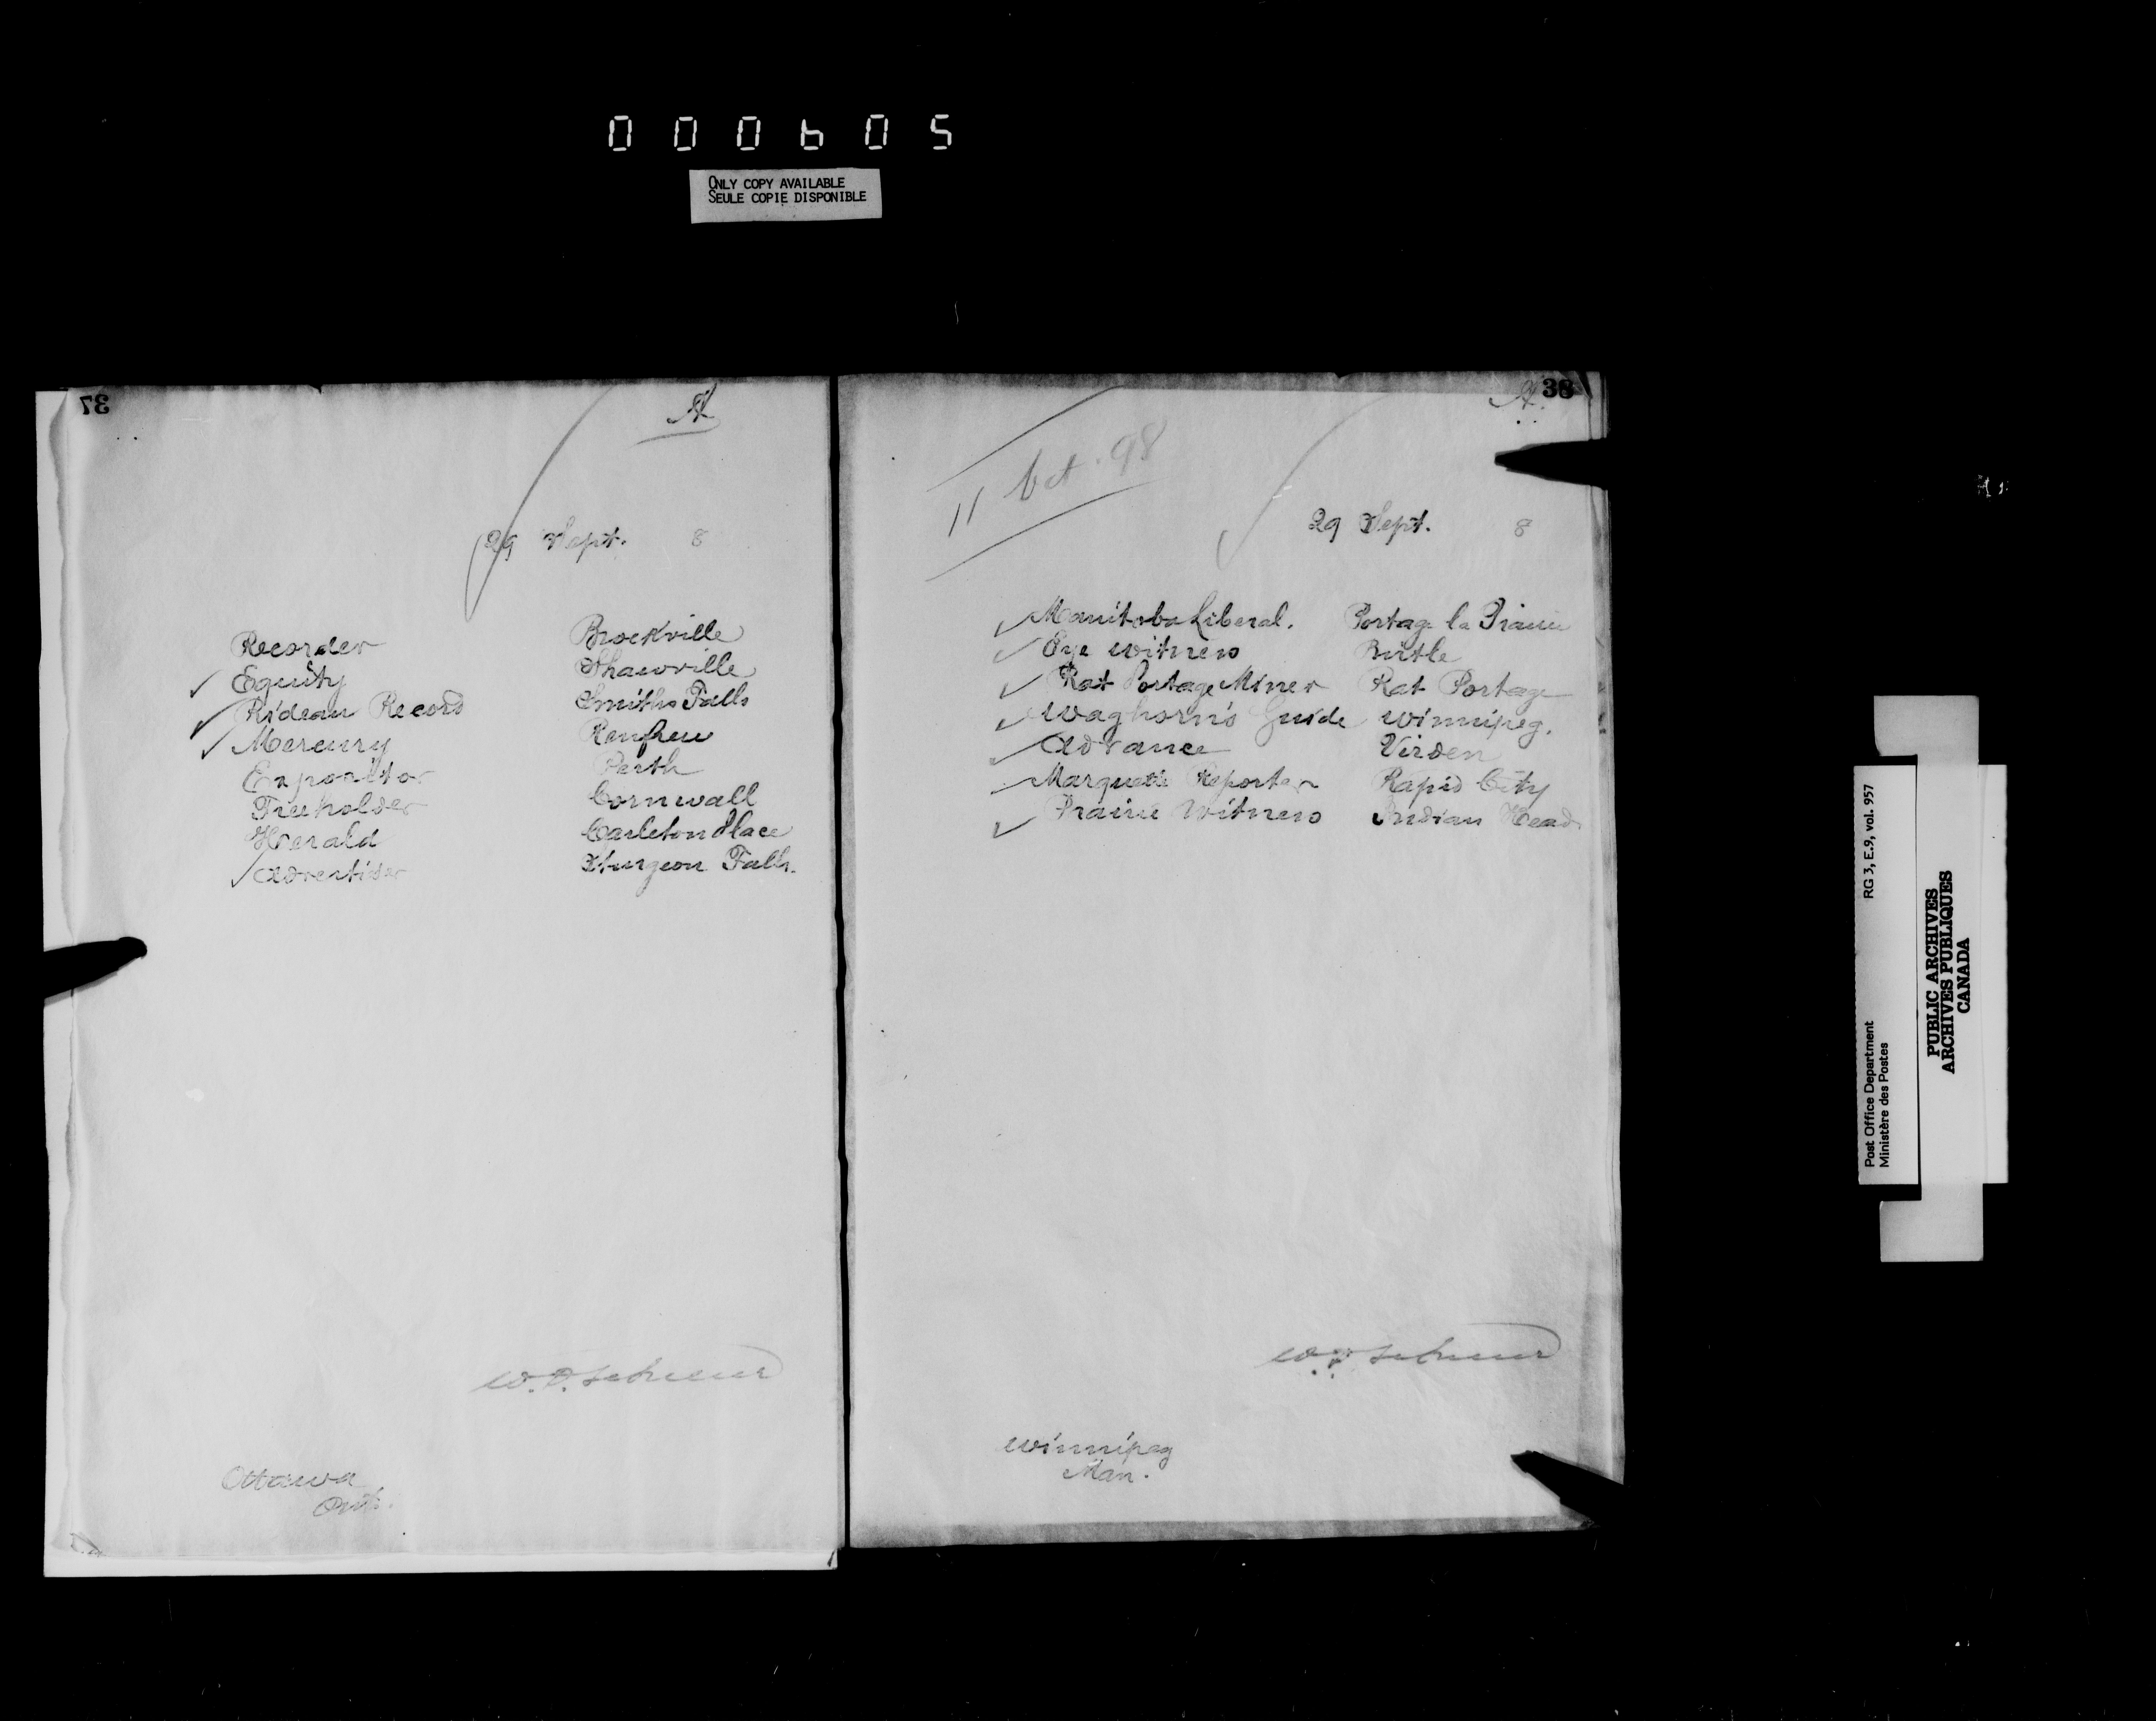 000605
ONLY COPY AVAILABLE
SEULE COPIE DISPONIBLE
37
A
29 Sept. 8
Recorder Brockville
✓ Equity Shawville
✓ Rideau Record Smiths Falls
✓ Mercury Renfrew
Expositor Perth
Freeholder Cornwall
Herald Carleton Place
✓ Advertiser Sturgeon Falls.
Ottawa
Ont.
38
A.
11 Oct. 98
29 Sept. 8
✓ Manitoba Liberal. Portage la Prairie
✓ Eye Witness Birtle
✓ Rat Portage Miner Rat Portage
✓ Waghorn's Guide Winnipeg.
✓ Advance Virden
✓ Marquette Reporter Rapid City
✓ Prairie Witness Indian Head
Winnipeg
Man.
Post Office Department RG 3, E.9, vol. 957
Ministère des Postes
PUBLIC ARCHIVES
ARCHIVES PUBLIQUES
CANADA